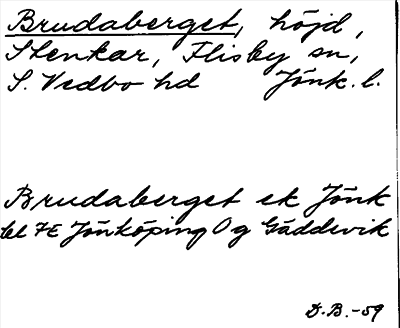 Brudaberget, höjd,
Stenkar, Flisby sn,
S. Vedbo hd Jönk. l.
Brudaberget ek Jönk
bl 7E Jönköping Og Gäddevik
D.B.-59